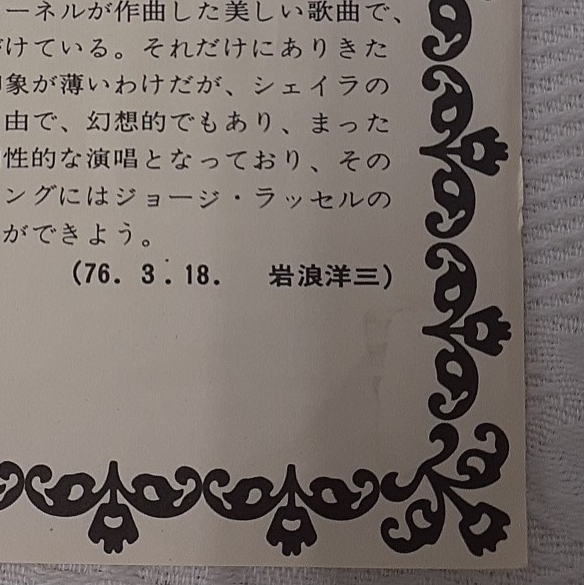 ーネルが作曲した美しい歌曲で、
けている。それだけにありきた
象が薄いわけだが、シェイラの
由で、幻想的でもあり、まった
性的な演唱となっており、その
ングにはジョージ・ラッセルの
ができよう。
(76. 3. 18. 岩浪洋三)